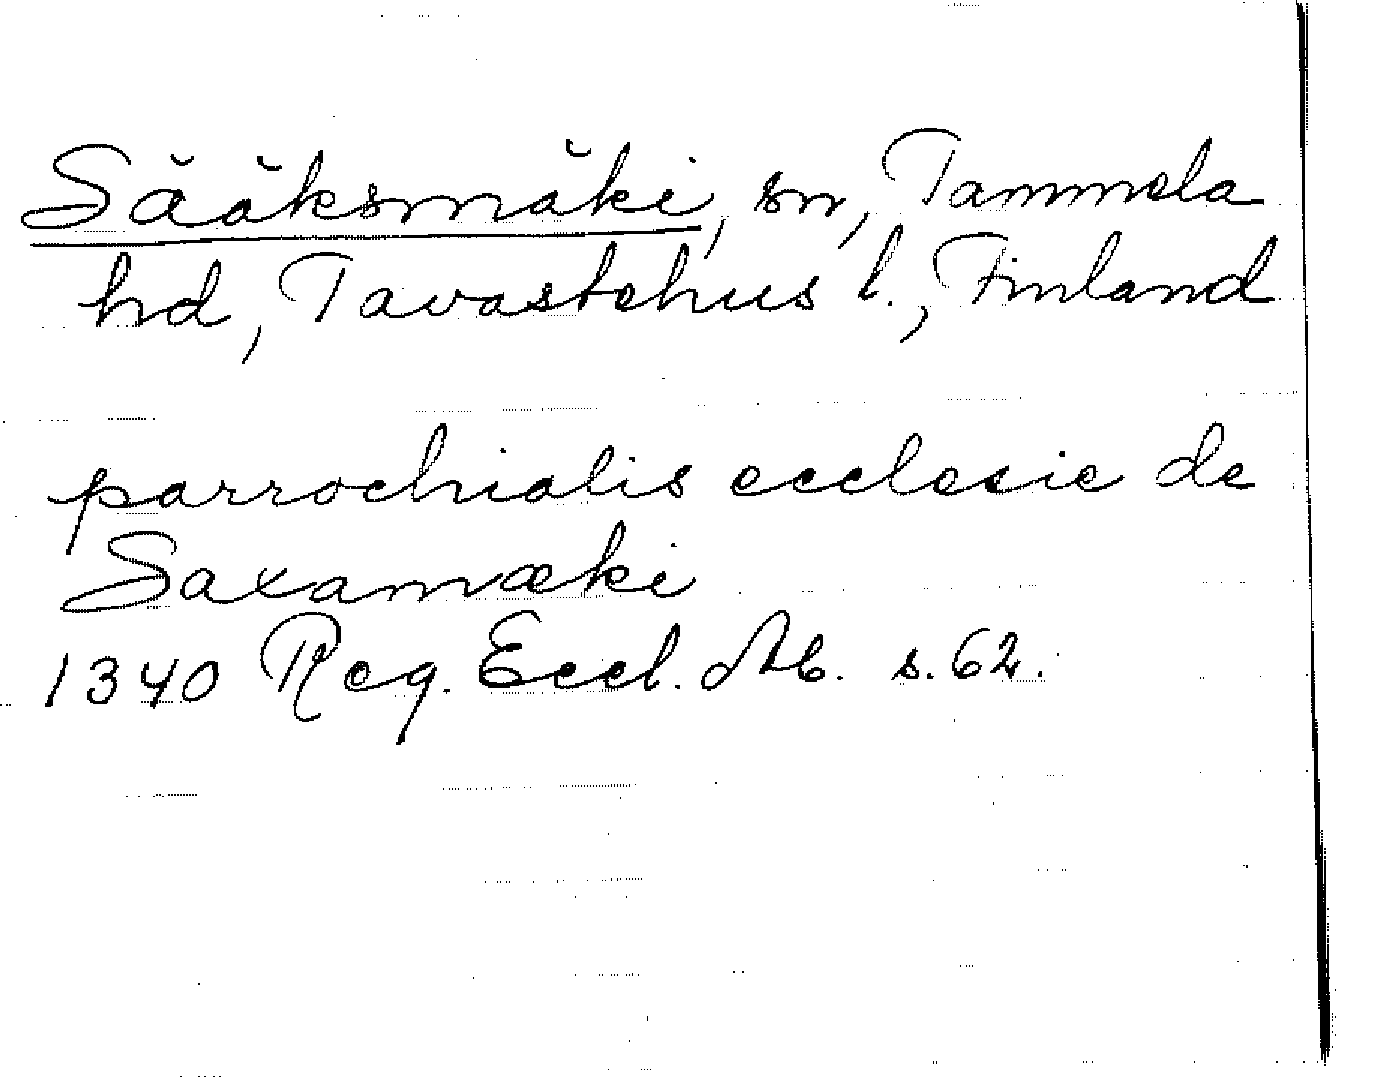 Sääksmäki, sn, Tammela
hd, Tavastehus l., Finland
parrochialis ecclesie de
Saxamæki
1340 Reg. Eccl. Ab. s. 62.